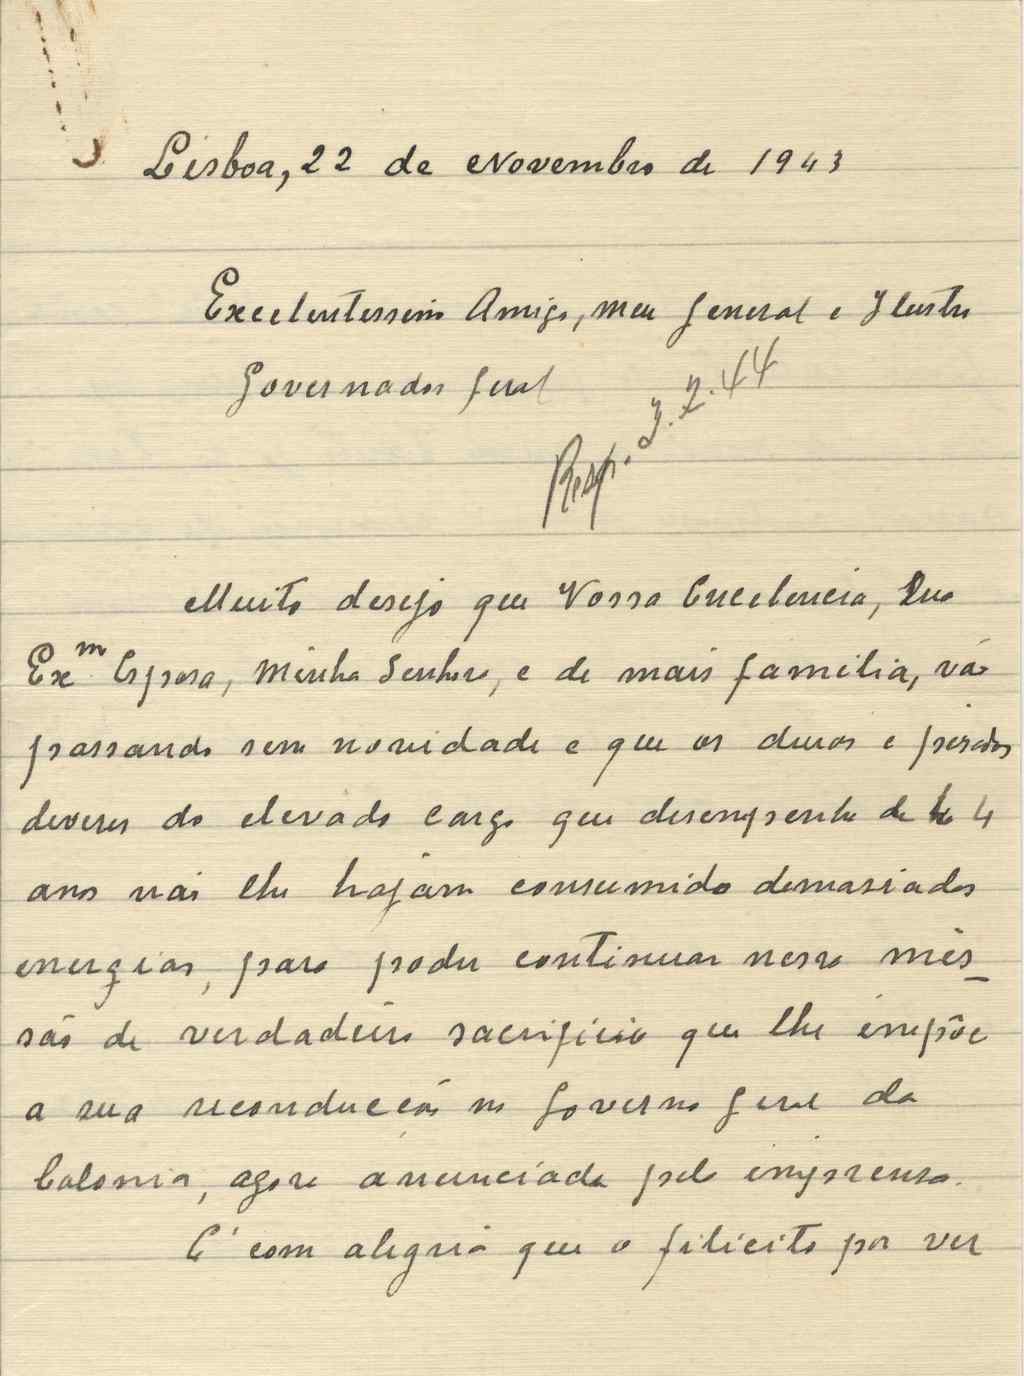 Lisboa, 22 de Novembro de 1943
Excelentessimo Amigo, meu General e Ilustre
Governador Geral
Resp. 3.2.44
Muito desejo que Vossa Excelencia, Sua
Exmª Esposa, Minha Senhora, e de mais familia, vão
passando sem novidade e que os duros e pesados
deveres do elevado cargo que desempenha de há 4
anos não lhe hajam consumido demasiadas
energias, para poder continuar nessa mis-
são de verdadeiro sacrificio que lhe impõe
a sua recondução no Governo Geral da
Colonia, agora anunciada pela imprensa.
E' com alegria que o felicito por ver